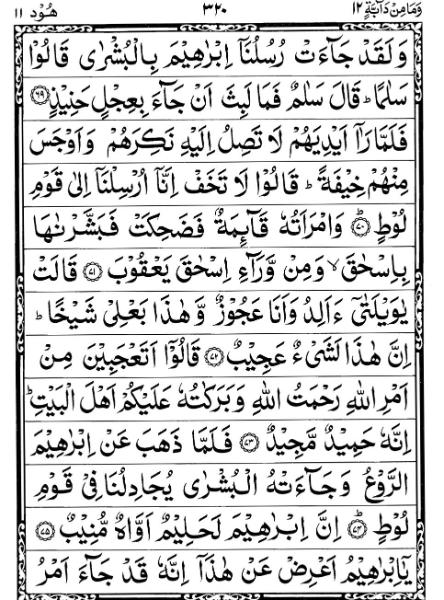 وَمَا مِنْ دَآبَّةٍ ١٢ ٣٢٠ هُوْد ١١
وَلَقَدْ جَآءَتْ رُسُلُنَاۤ اِبْرٰهِيْمَ بِالْبُشْرٰى قَالُوْا
سَلٰمًا ؕ قَالَ سَلٰمٌ فَمَا لَبِثَ اَنْ جَآءَ بِعِجْلٍ حَنِيْذٍ ۝٦٩
فَلَمَّا رَاٰۤ اَيْدِيَهُمْ لَا تَصِلُ اِلَيْهِ نَكِرَهُمْ وَاَوْجَسَ
مِنْهُمْ خِيْفَةً ؕ قَالُوْا لَا تَخَفْ اِنَّاۤ اُرْسِلْنَاۤ اِلٰى قَوْمِ
لُوْطٍ ؕ ۝٧٠ وَامْرَاَتُهٗ قَآئِمَةٌ فَضَحِكَتْ فَبَشَّرْنٰهَا
بِاِسْحٰقَ ۙ وَمِنْ وَّرَآءِ اِسْحٰقَ يَعْقُوْبَ ۝٧١ قَالَتْ
يٰوَيْلَتٰٓى ءَاَلِدُ وَاَنَا عَجُوْزٌ وَّهٰذَا بَعْلِىْ شَيْخًا ؕ
اِنَّ هٰذَا لَشَىْءٌ عَجِيْبٌ ۝٧٢ قَالُوْۤا اَتَعْجَبِيْنَ مِنْ
اَمْرِ اللّٰهِ رَحْمَتُ اللّٰهِ وَبَرَكٰتُهٗ عَلَيْكُمْ اَهْلَ الْبَيْتِ ؕ
اِنَّهٗ حَمِيْدٌ مَّجِيْدٌ ۝٧٣ فَلَمَّا ذَهَبَ عَنْ اِبْرٰهِيْمَ
الرَّوْعُ وَجَآءَتْهُ الْبُشْرٰى يُجَادِلُنَا فِىْ قَوْمِ
لُوْطٍ ؕ ۝٧٤ اِنَّ اِبْرٰهِيْمَ لَحَلِيْمٌ اَوَّاهٌ مُّنِيْبٌ ۝٧٥
يٰۤاِبْرٰهِيْمُ اَعْرِضْ عَنْ هٰذَا ۚ اِنَّهٗ قَدْ جَآءَ اَمْرُ